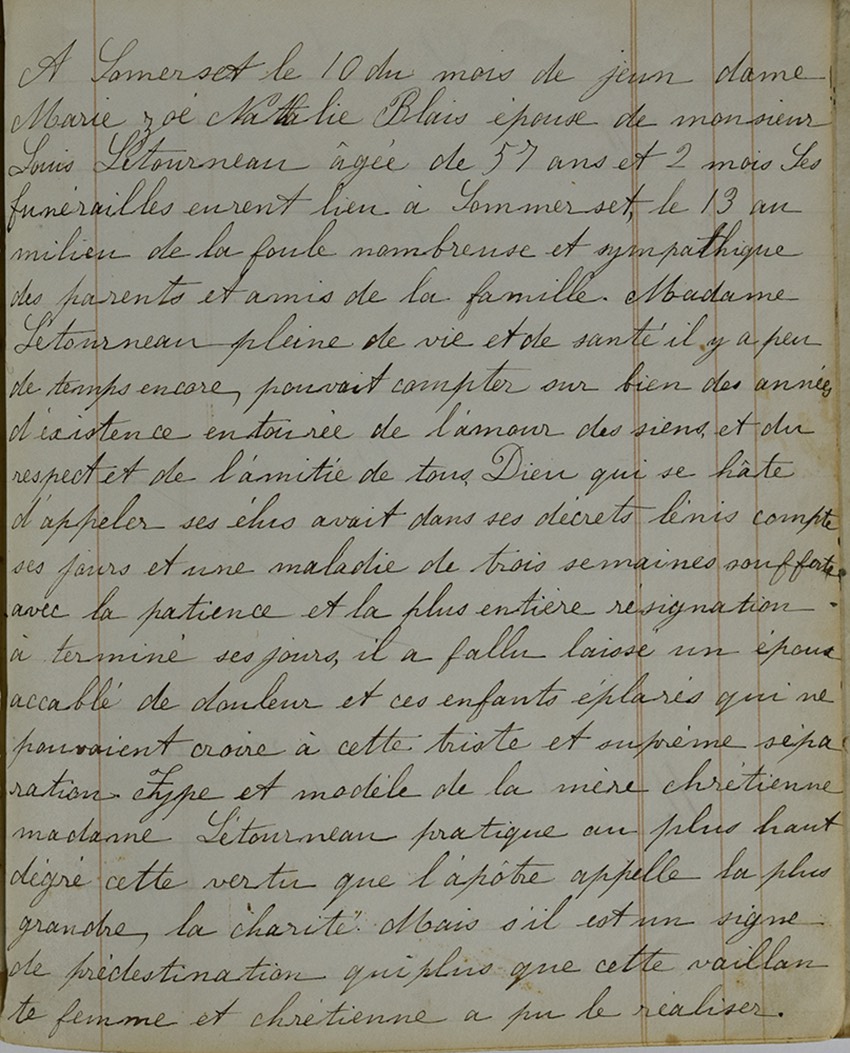 A Somerset le 10 du mois de jeun dame
Marie zoé Nathalie Blais épouse de monsieur
Louis Létourneau âgée de 57 ans et 2 mois Ses
funérailles eurent lieu à Sommerset, le 13 au
milieu de la foule nombreuse et sympathique
des parents et amis de la famille. Madame
Létourneau pleine de vie et de santé il y a peu
de temps encore, pouvait compter sur bien des années
d'éxistence entourée de l'amour des siens, et du
respect et de l'amitié de tous, Dieu qui se hâte
d'appeler ses élus avait dans ses décrets bénis compté
ses jours et une maladie de trois semaines soufferte
avec la patience et la plus entière résignation
à terminé ses jours, il a fallu laissé un époux
accablé de douleur et ces enfants éplarés qui ne
pouvaient croire à cette triste et suprême sépa
ration. Type et modèle de la mère chrétienne
madame Létourneau pratique au plus haut
dégré cette vertu que l'apôtre appelle la plus
grandre, la charité". Mais s'il est un signe
de prédestination qui plus que cette vaillan
te femme et chrétienne a pu le réaliser.